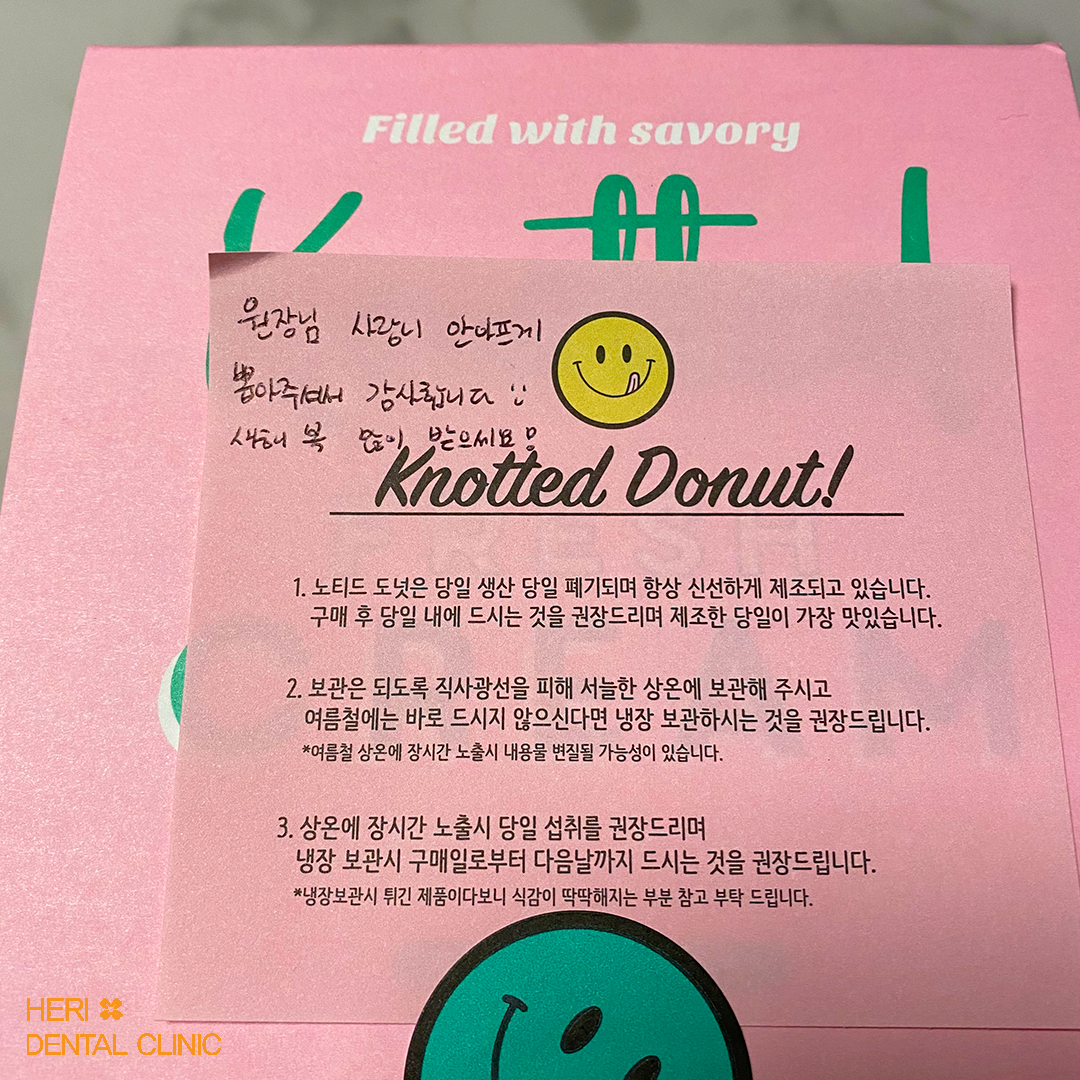 Filled with savory
원장님 사랑니 안아프게
뽑아주셔서 감사합니다 :)
새해 복 많이 받으세요!
Knotted Donut!
FRESH
CREAM
1. 노티드 도넛은 당일 생산 당일 폐기되며 항상 신선하게 제조되고 있습니다.
구매 후 당일 내에 드시는 것을 권장드리며 제조한 당일이 가장 맛있습니다.
2. 보관은 되도록 직사광선을 피해 서늘한 상온에 보관해 주시고
여름철에는 바로 드시지 않으신다면 냉장 보관하시는 것을 권장드립니다.
*여름철 상온에 장시간 노출시 내용물 변질될 가능성이 있습니다.
3. 상온에 장시간 노출시 당일 섭취를 권장드리며
냉장 보관시 구매일로부터 다음날까지 드시는 것을 권장드립니다.
*냉장보관시 튀긴 제품이다보니 식감이 딱딱해지는 부분 참고 부탁 드립니다.
HERI
DENTAL CLINIC